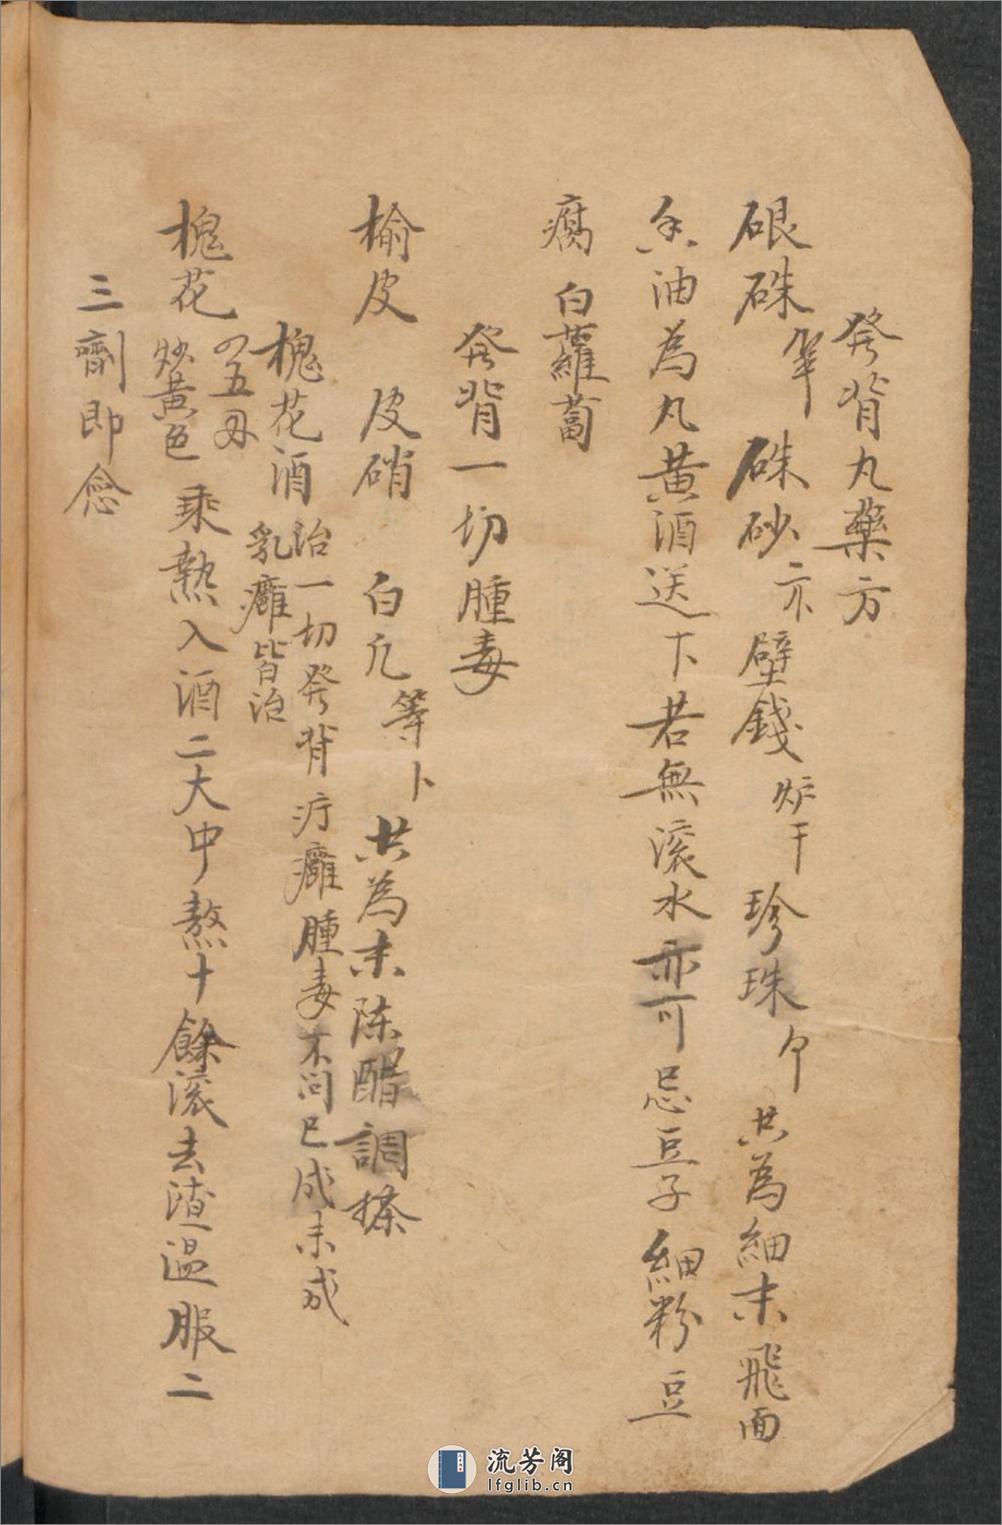 發背丸藥方
硍硃 硃砂 壁錢 炉干 珍珠 共為細末飛面
香油為丸黄酒送下若無滚水亦可忌豆子細粉豆
腐 白蘿蔔
發背一切腫毒
榆皮 皮硝 白凢 等卜 共為末陈醋調搽
槐花酒 治一切發背疔癰腫毒不问已成未成
乳癰皆治
槐花 四五
炒黄色 乘熱入酒二大中熬十餘滚去渣温服二
三劑即念
流芳阁
lfglib.cn